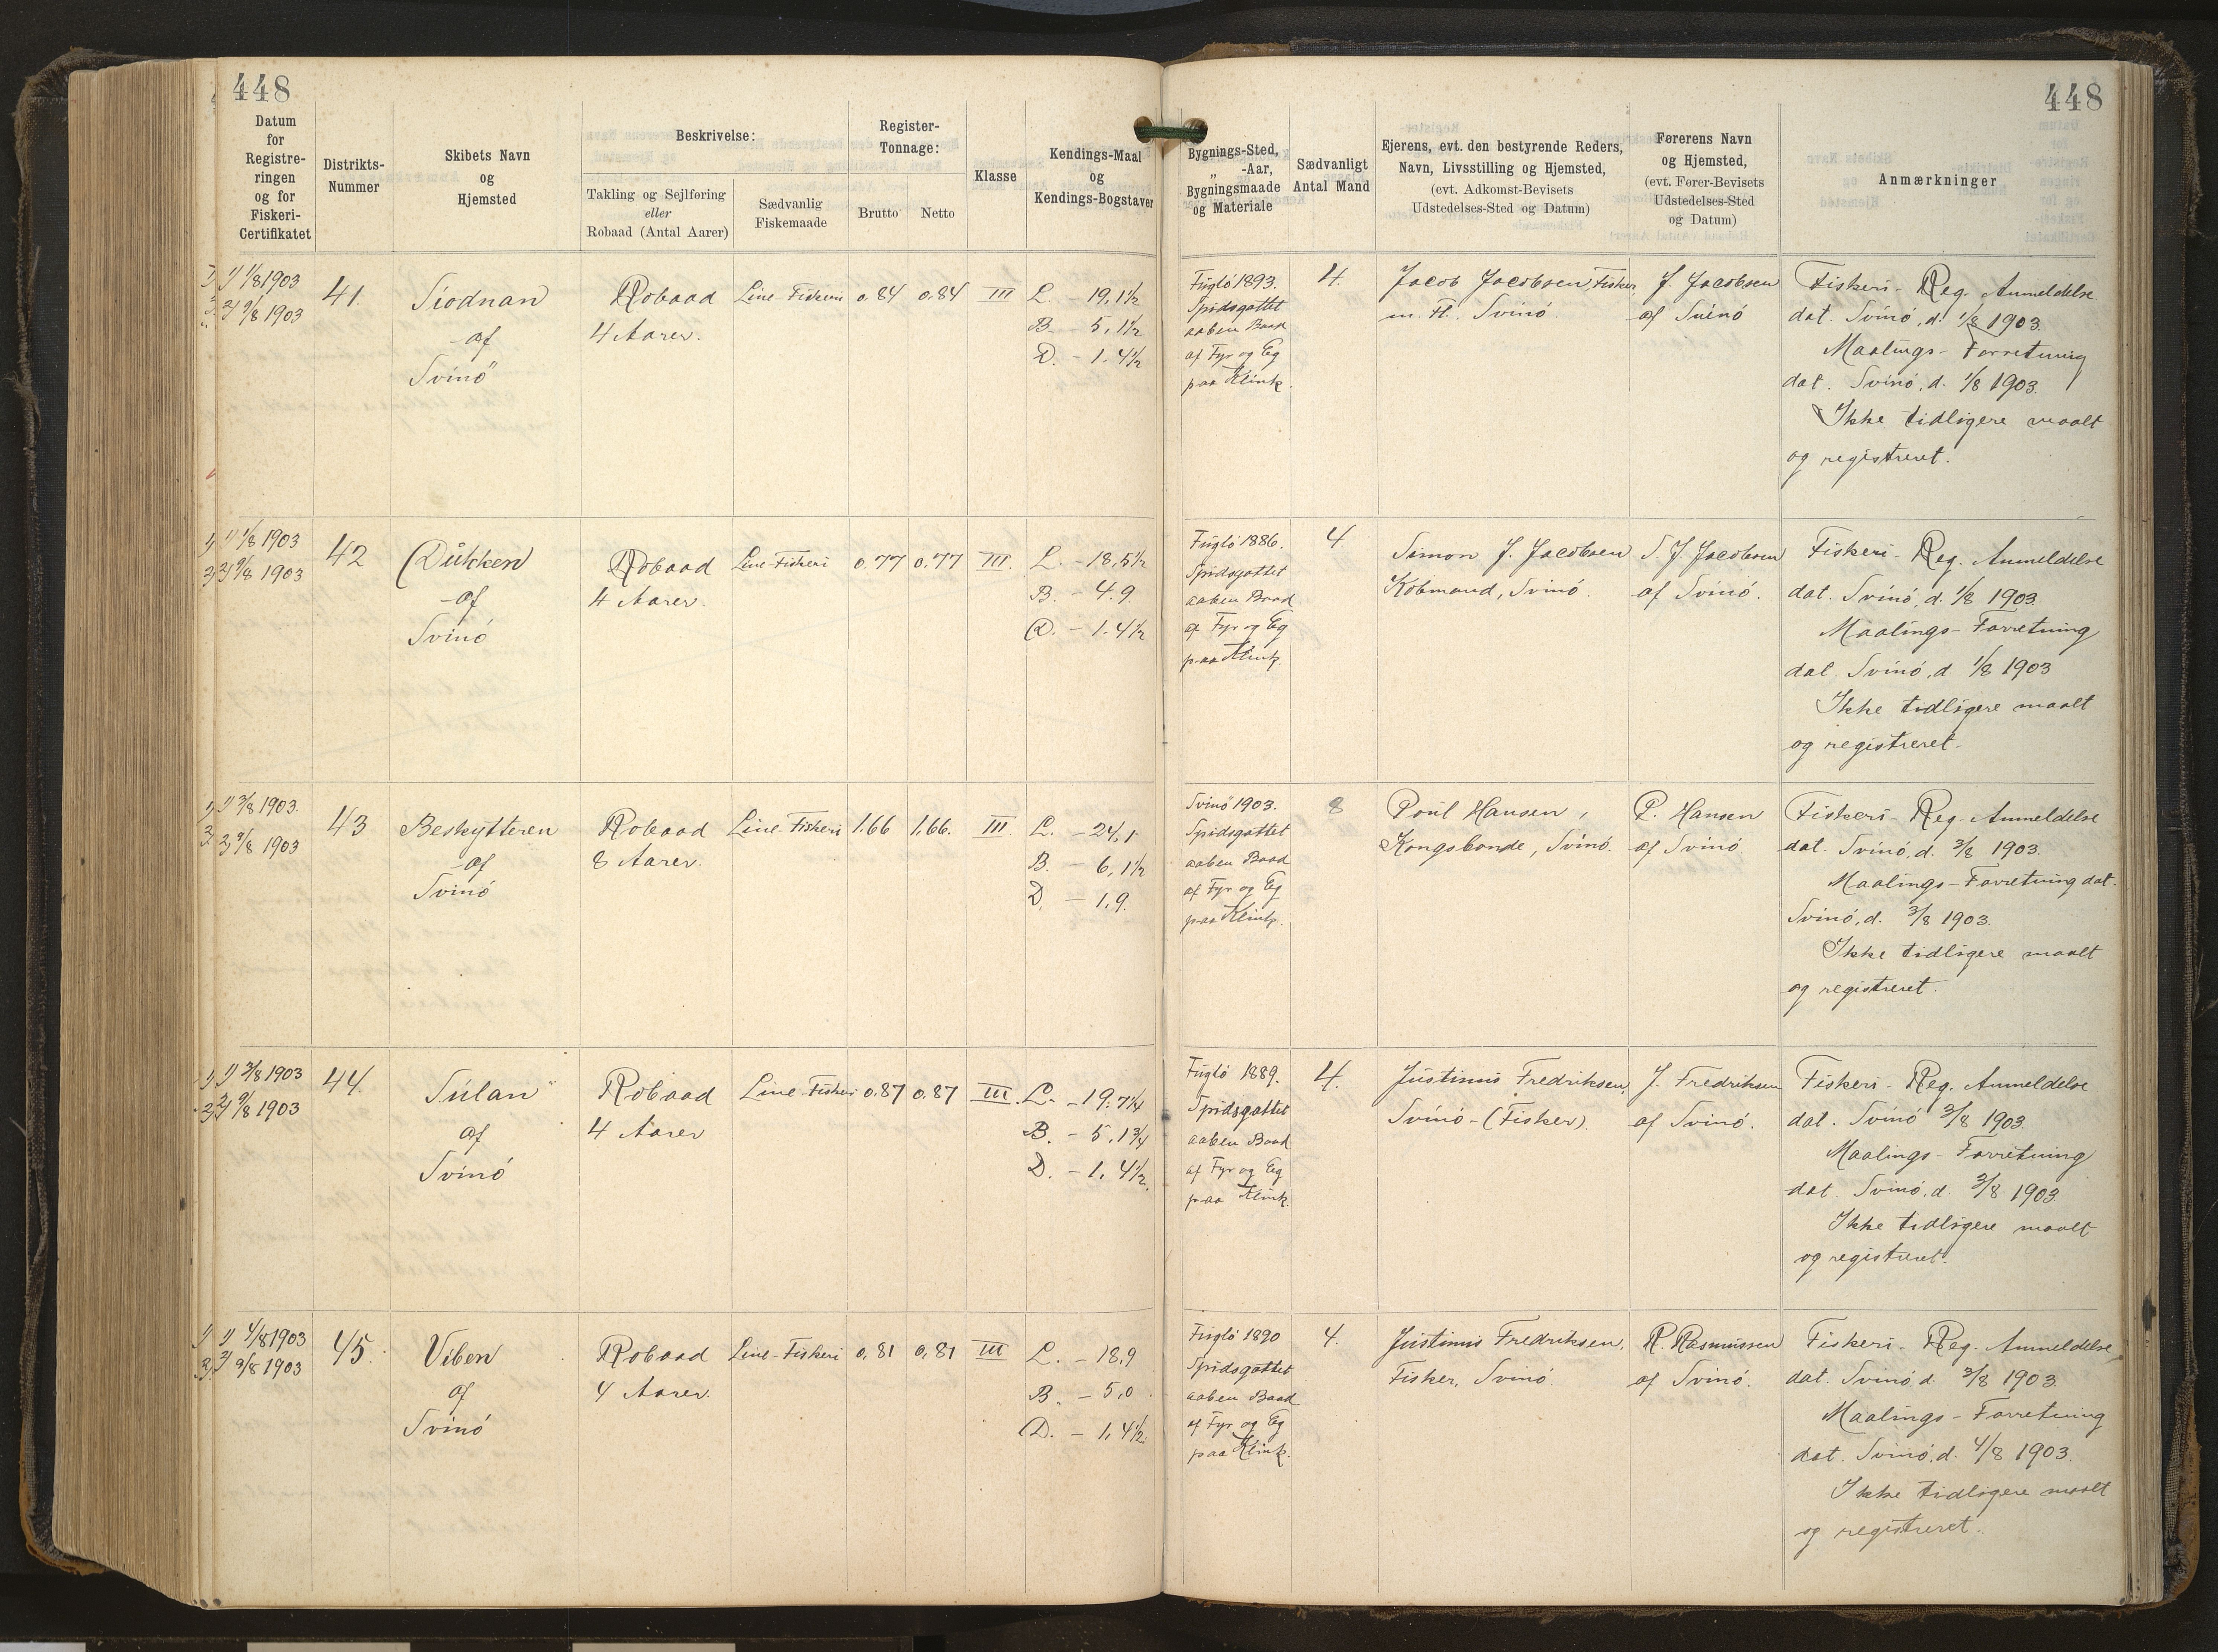 448
448
Datum for Registreringen og for Fiskeri-Certifikatet
Distrikts-Nummer
Skibets Navn og Hjemsted
Beskrivelse:
Takling og Sejlføring eller Robaad (Antal Aarer)
Sædvanlig Fiskemaade
Register-Tonnage:
Brutto
Netto
Klasse
Kendings-Maal og Kendings-Bogstaver
Bygnings-Sted, „ -Aar, Bygningsmaade og Materiale
Sædvanligt Antal Mand
Ejerens, evt. den bestyrende Reders, Navn, Livsstilling og Hjemsted, (evt. Adkomst-Bevisets Udstedelses-Sted og Datum)
Førerens Navn og Hjemsted, (evt. Fører-Bevisets Udstedelses-Sted og Datum)
Anmærkninger
1) 1/8 1903
2) 9/8 1903
41.
Siodnan
af
Svinö
Robaad
4 Aarer.
Line-Fiskeri
0,84
0,84
III
L. - 19,1½
B. - 5,1½
D. - 1.4½
Fuglö 1893.
Spidsgattet
aaben Baad
af Fyr og Eg
paa Klink.
4.
Jacob Jacobsen, Fisker,
m. Fl. Svinö.
J. Jacobsen
af Svinö
Fiskeri-Reg. Anmeldelse
dat. Svinö, d. 1/8 1903.
Maalings-Forretning
dat. Svinö, d. 1/8 1903.
Ikke tidligere maalt
og registreret.
1) 1/8 1903
2) 9/8 1903
42
Dukken
af
Svinö
Robaad
4 Aarer.
Line-Fiskeri
0,77
0,77
III.
L. - 18,5½
B. - 4.9.
D. - 1.4½
Fuglö 1886.
Spidsgattet
aaben Baad
af Fyr og Eg
paa Klink.
4.
Simon J. Jacobsen
Köbmand, Svinö.
S. J. Jacobsen
af Svinö.
Fiskeri-Reg. Anmeldelse
dat. Svinö, d. 1/8 1903.
Maalings-Forretning
dat. Svinö, d. 1/8 1903
Ikke tidligere maalt
og registreret.
1) 3/8 1903.
2) 9/8 1903
43
Beskytteren
af
Svinö
Robaad
8 Aarer.
Line-Fiskeri
1,66
1,66.
III
L. - 24,1
B. - 6,1½
D. - 1,9.
Svinö 1903.
Spidsgattet
aaben Baad
af Fyr og Eg
paa Klink.
8
Poul Hansen,
Kongsbonde, Svinö.
P. Hansen
af Svinö
Fiskeri-Reg. Anmeldelse
dat. Svinö, d. 3/8 1903.
Maalings-Forretning dat.
Svinö, d. 3/8 1903.
Ikke tidligere maalt
og registreret.
1) 3/8 1903
2) 9/8 1903
44.
Súlan
af
Svinö
Robaad
4 Aarer
Line-Fiskeri
0.87
0,87
III.
L. - 19.7¼
B. - 5,1¾
D. - 1,4½.
Fuglö 1889.
Spidsgattet
aaben Baad
af Fyr og Eg
paa Klink.
4.
Justinus Fredriksen,
Svinö - (Fisker).
J. Fredriksen
af Svinö.
Fiskeri-Reg. Anmeldelse
dat. Svinö 3/8 1903.
Maalings-Forretning
dat. Svinö, d. 3/8 1903
Ikke tidligere maalt
og registreret.
1) 4/8 1903
2) 9/8 1903
45.
Viben
af
Svinö
Robaad
4 Aarer.
Line-Fiskeri
0,81
0,81
III
L. - 18,9
B. - 5,0
D. - 1,4½.
Fuglö 1890
Spidsgattet
aaben Baad
af Fyr og Eg
paa Klink.
4.
Justinus Fredriksen,
Fisker, Svinö.
R. Rasmussen
af Svinö.
Fiskeri-Reg. Anmeldelse,
dat. Svinö d. 3/8 1903.
Maalings-Forretning
dat. Svinö, d. 4/8 1903.
Ikke tidligere maalt
og registreret.